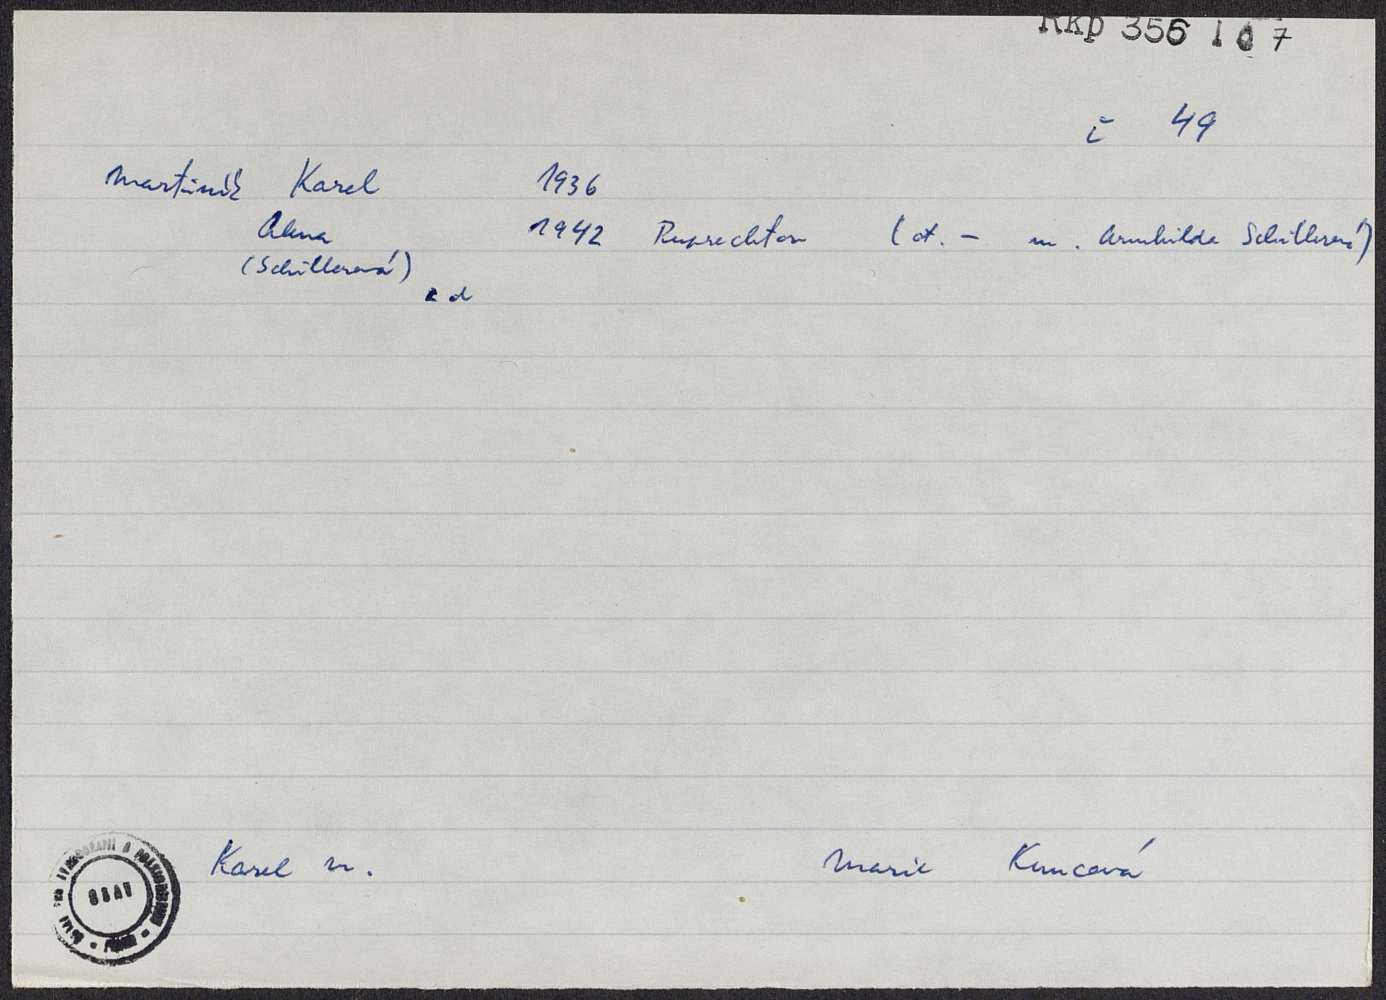 Rkp 356 167
č 49
Martiník Karel 1936
Alena 1942 Ruprechtov (ot. - m. Armhilda Schillerová)
(Schillerová)
Karel M. Marie Kuncová
ČSAV